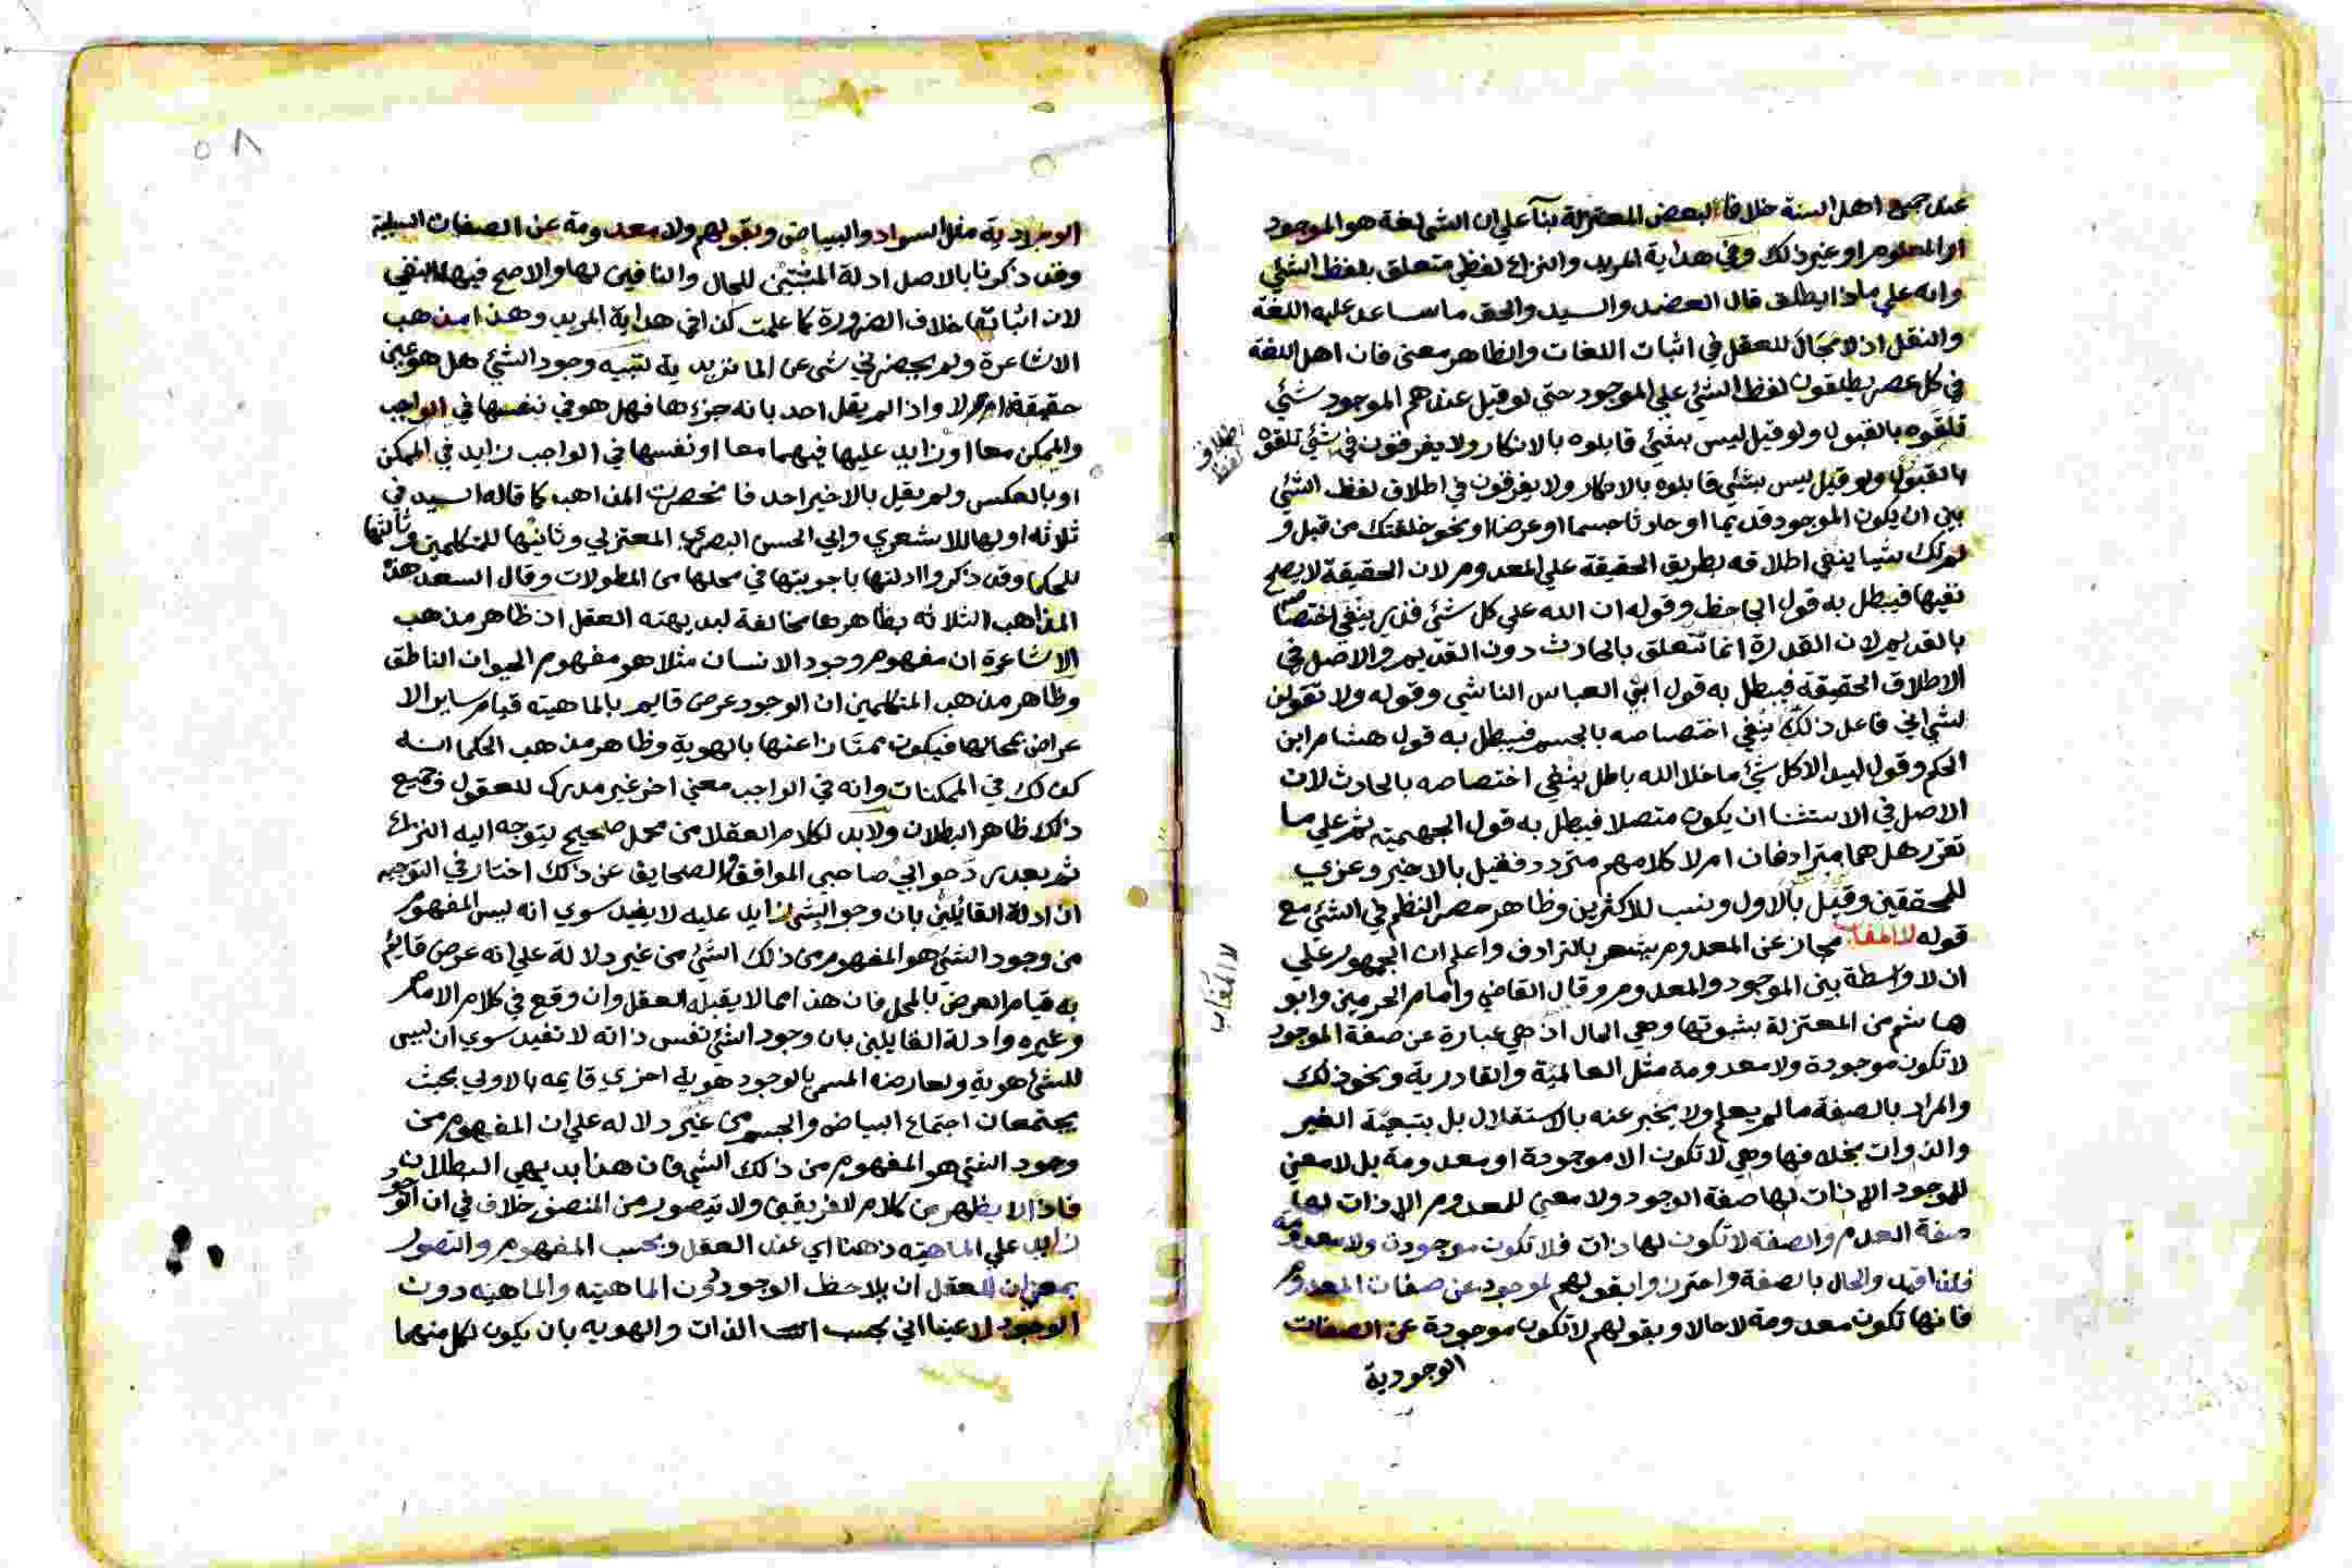 عند جميع اهل السنة خلافا لبعض المعتزلة بنآ علي ان الشي لغة هو الموجود
او المعلوم او غير ذلك وفي هداية المريد والنزاع لفظي متعلق بلفظ الشئي
وانه علي ماذا يطلق قال العضد والسيد والحق ما ساعد عليه اللغة
والنقل اذ لا مجال للعقل في اثبات اللغات والظاهر معنى فان اهل اللغة
في كل عصر يطلقون لفظ الشئ علي الموجود حتي لو قيل عندهم الموجود شئي
تلقوه بالقبول ولو قيل ليس بشئي قابلوه بالانكار ولا يفرقون في شئي تلقوه
اطلاق لفظ
بالقبول ولو قيل ليس بشئي قابلوه بالانكار ولا يفرقون في اطلاق لفظ الشئي
بين ان يكون الموجود قديما او حادثا جسما او عرضا او نحو خلقتك من قبل و
لم تك شيا ينفي اطلاقه بطريق الحقيقة علي المعدوم لان الحقيقة لا يصلح
نفيها فيبطل به قول الجاحظ وقوله ان الله علي كل شئ قدير ينفي اختصاصه
بالقديم لان القدرة انما تتعلق بالحادث دون القديم والاصل في
الاطلاق الحقيقة فيبطل به قول ابي العباس الناشي وقوله ولا تقولن
لشي اني فاعل ذلك ينفي اختصاصه بالجسم فيبطل به قول هشام ابن
الحكم وقول لبيد الا كل شئ ما خلا الله باطل ينفي اختصاصه بالحادث لان
الاصل في الاستثنا ان يكون متصلا فيبطل به قول الجهمية ثم علي ما
تقرر هل هما مترادفان ام لا كلامهم متردد فقيل بالاخير وعزي
للمحققين وقيل بالاول ونسب للاكثرين وظاهر حصر النظم في الشئ مع
قوله لا المغاب مجاز عن المعدوم يشعر بالترادف واعلم ان الجمهور علي
لا المغاب
ان لا واسطة بين الموجود والمعدوم وقال القاضي وامام الحرمين وابو
هاشم من المعتزلة بثبوتها وهي الحال اذ هي عبارة عن صفة الموجود
لا تكون موجودة ولا معدومة مثل العالمية والقادرية ونحو ذلك
والمراد بالصفة ما لم يعلم ولا يخبر عنه بالاستقلال بل بتبعية الغير
والذوات بخلافها وهي لا تكون الا موجودة او معدومة بل لا معني
للموجود الا ذات لها صفة الوجود ولا معني للمعدوم الا ذات لها
صفة العدم والصفة لا تكون لها ذات فلا تكون موجودة ولا معدومة
فلذا قيد والحال بالصفة واحترزوا بقولهم لموجود عن صفات المعدوم
فانها تكون معدومة لا حالا وبقولهم لا تكون موجودة عن الصفات
الوجودية
٥٨
الوجودية مثل السواد والبياض وبقولهم ولا معدومة عن الصفات السلبية
وقد ذكرنا بالاصل ادلة المثبتين للحال والنافين لها والاصح فيها النفي
لان اثباتها خلاف الضرورة كما علمت كذا في هداية المريد وهذا مذهب
الاشاعرة ولم يحضرني شي عن الماتزيدية تنبيه وجود الشئ هل هو عين
حقيقة ام لا واذا لم يقل احد بانه جزءها فهل هو في نفسها في الواجب
والممكن معا او زايد عليها فيهما معا او نفسها في الواجب زايد في الممكن
او بالعكس ولم يقل بالاخير احد فانحصرت المذاهب كما قاله السيد في
ثلاثه اولها للاشعري وابي الحسن البصري المعتزلي وثانيها للمتكلمين وثالثها
للحكما وقد ذكروا ادلتها باجوبتها في محلها من المطولات وقال السعد هذه
المذاهب الثلاثه بظاهرها مخالفة لبديهته العقل اذ ظاهر مذهب
الاشاعرة ان مفهوم وجود الانسان مثلا هو مفهوم الحيوان الناطق
وظاهر مذهب المتكلمين ان الوجود عرض قايم بالماهيته قيام ساير الا
عراض بمحالها فيكون ممتازا عنها بالهوية وظاهر مذهب الحكما انه
كذلك في الممكنات وانه في الواجب معني اخر غير مدرك للعقول وجميع
ذلك ظاهر البطلان ولا بد لكلام العقلا من محمل صحيح يتوجه اليه النزاع
ثم بعد رد جوابي صاحبي المواقف والصحايف عن ذلك اختار في التوجيه
ان ادلة القايلين بان وجود الشي زايد عليه لا يفيد سوي انه ليس المفهوم
من وجود الشئ هو المفهوم من ذلك الشئ من غير دلالة علي انه عرض قايم
به قيام العرض بالمحل فان هذا مما لا يقبله العقل وان وقع في كلام الامام
وغيره وادلة القايلين بان وجود الشئ نفس ذاته لا تفيد سوي ان ليس
للشئ هوية ولعارضه المسمي بالوجود هوية اخري قايمه بالاولي بحيث
يجتمعان اجتماع البياض والجسم من غير دلاله علي ان المفهوم من
وجود الشئي هو المفهوم من ذلك الشي فان هذا بديهي البطلان
فاذا لا يظهر من كلام الفريقين ولا يتصور من المنصف خلاف في ان الوجود
زايد علي الماهيته ذهنا اي عند العقل وبحسب المفهوم والتصور
بمعني ان للعقل ان يلاحظ الوجود دون الماهيته والماهيه دون
الوجود لا عينا اني بحسب الذات والهويه بان يكون لكل منهما